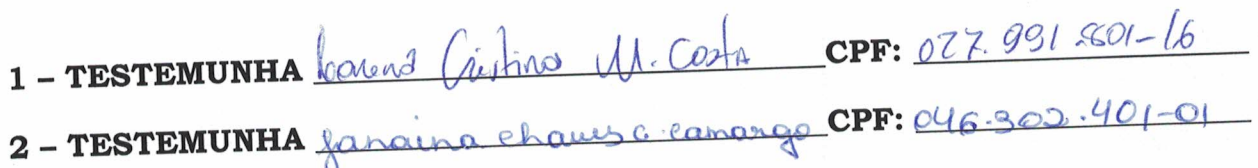 1 – TESTEMUNHA Cristina M. Costa CPF: 027.991.801-16
2 – TESTEMUNHA Janaina Chaves C. Camargo CPF: 046.302.401-01